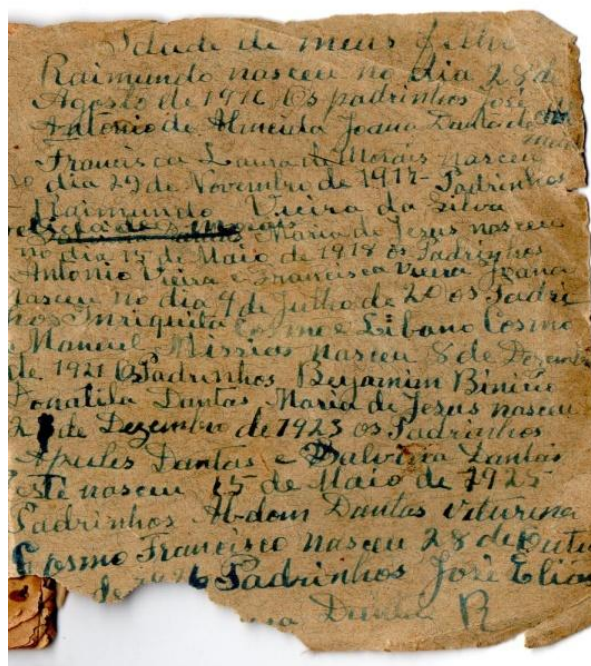 Idade de meus filho
Raimundo nasceu no dia 28 de
Agosto de 1916 Os padrinhos José
Antonio de Almeida Joana Dantas de
Francisca Laura de Morais nasceu
no dia 29 de Novembro de 1917- Padrinhos
Raimundo Vieira da Silva
Maria de Jesus nasceu
no dia 15 de Maio de 1918 os Padrinhos
Antonio Vieira e Francisca Vieira Joana
nasceu no dia 9 de Julho de 20 os Padri
nhos Inriquita Cosmo e Libano Cosmo
Manuel Missias nasceu 8 de Dezemb
de 1921 Os Padrinhos Beyamim
Donatila Dantas Maria de Jezus nasceu
2 de Dezembro de 1923 os Padrinhos
Apules Dantas e Dantas
este nasceu 15 de Maio de 1925
Padrinhos Abdom Dantas viturina
Cosmo Francisco nasceu 28 de outu
de 1926 Padrinhos José Elias
Dantas R